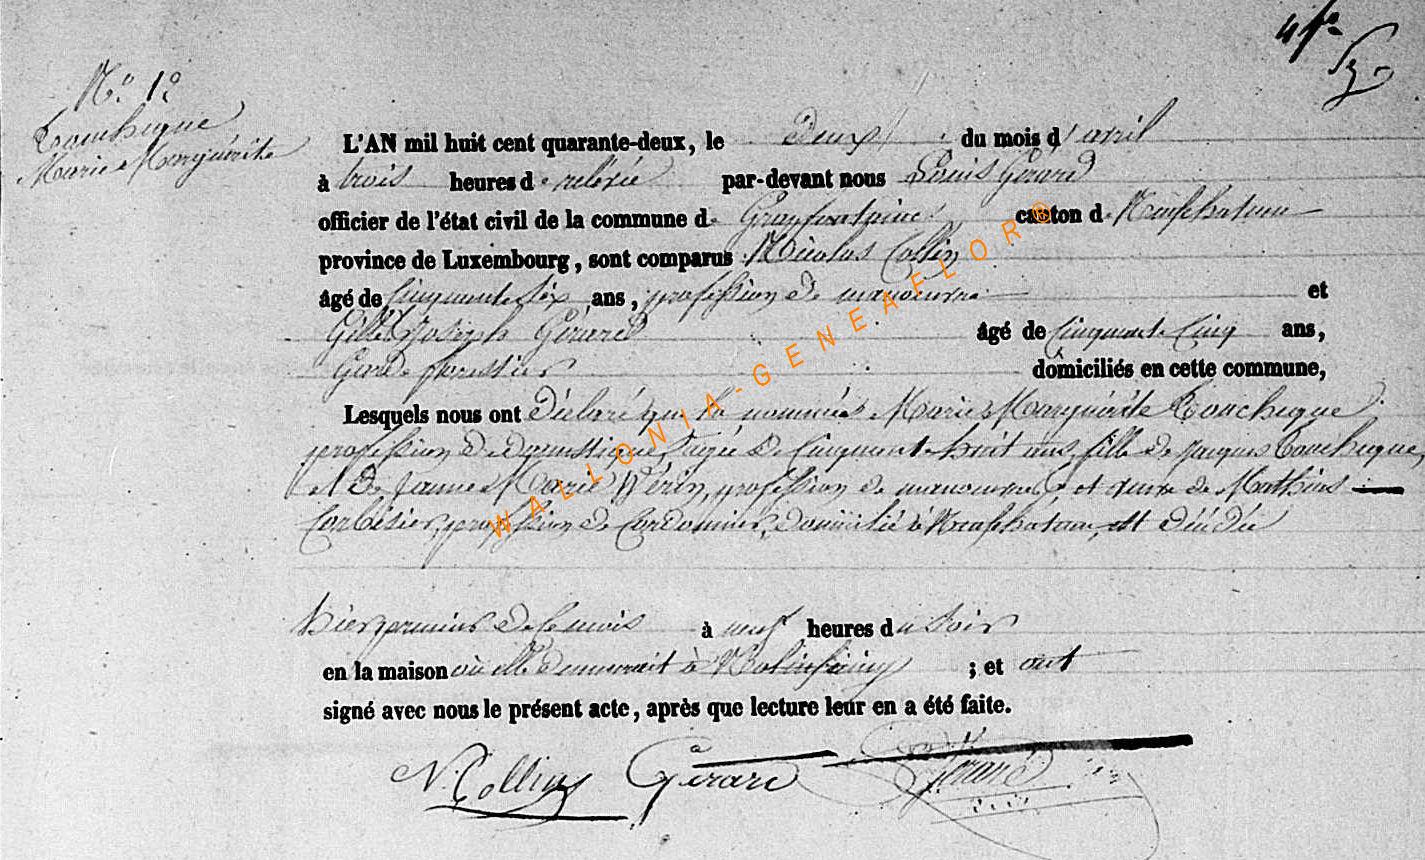 4 fo
N.° 12
Touchèque
Marie Marguérite
L'AN mil huit cent quarante-deux, le Deux du mois d'avril
à trois heures de relevée par-devant nous Louis Gérard
officier de l'état civil de la commune de Grapfontaine canton de Neufchateau
province de Luxembourg, sont comparus Nicolas Collin
âgé de Cinquante six ans, profession de manoeuvre et
Gille Joseph Gérard âgé de Cinquante Cinq ans,
Garde forestier domiciliés en cette commune,
Lesquels nous ont déclaré que la nommée Marie Marguérite Touchèque
profession de domestique, agée de Cinquante huit ans, fille de Jacques Touchèque,
et de Jeanne Marie profession de manoeuvre, et veuve de Mathieu
Corbisier profession de Cordonnier, domicilié à Neufchateau, est décédée
hier premier de ce mois à neuf heures du soir
en la maison où elle demeurait à ; et ont
signé avec nous le présent acte, après que lecture leur en a été faite.
N. Collin Gérard Gérard
WALLONIA-GENEAFLOR®